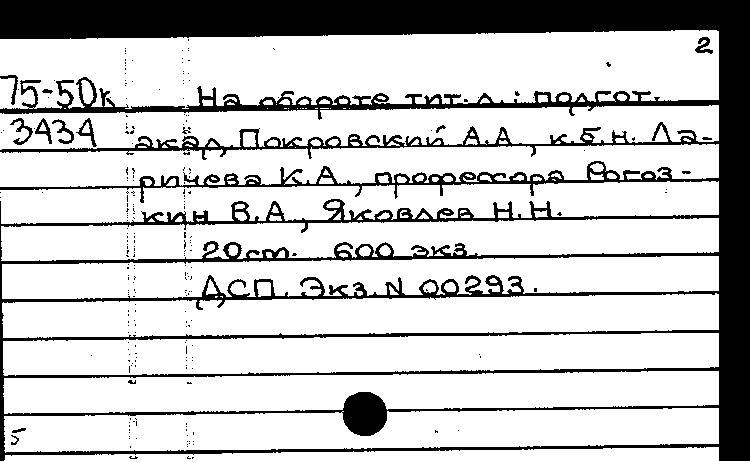 2
75-50к На обороте тит.л.: подгот.
3434 акад. Покровский А.А., к.б.н. Ла-
ричева К.А., профессора Рогоз-
кин В.А., Яковлев Н.Н.
20cm. 600 экз.
ДСП. Экз. N 00293.
5